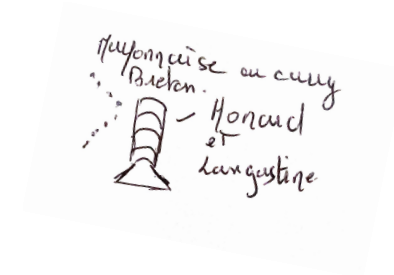 Mayonnaise au curry
Breton.
Homard
et
Langoustine